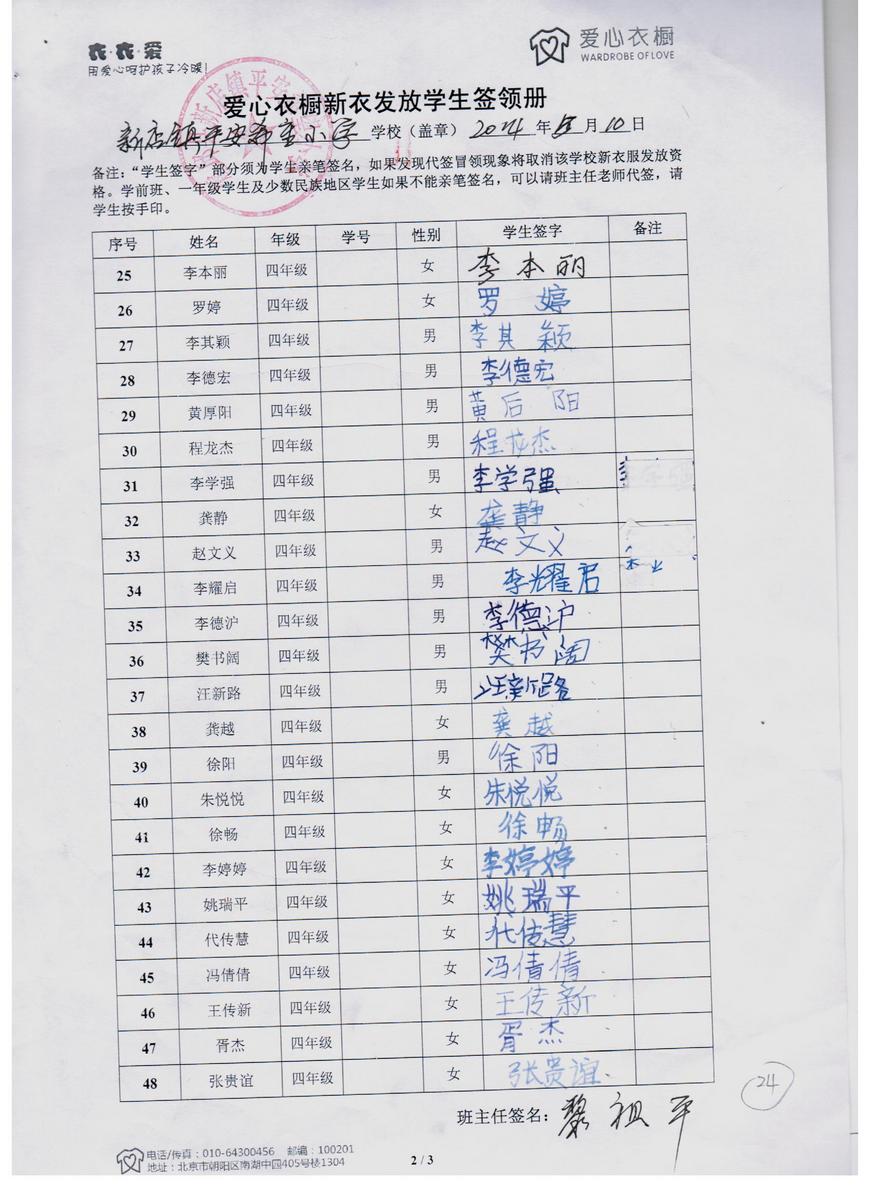 衣·衣·爱
用爱心呵护孩子冷暖!
爱心衣橱
WARDROBE OF LOVE
爱心衣橱新衣发放学生签领册
新店镇平安希望小学 学校（盖章） 2014 年 月 10 日
备注：“学生签字”部分须为学生亲笔签名，如果发现代签冒领现象将取消该学校新衣服发放资
格。学前班、一年级学生及少数民族地区学生如果不能亲笔签名，可以请班主任老师代签，请
学生按手印。
序号 姓名 年级 学号 性别 学生签字 备注
25 李本丽 四年级 女 李本丽
26 罗婷 四年级 女 罗婷
27 李其颖 四年级 男 李其颖
28 李德宏 四年级 男 李德宏
29 黄厚阳 四年级 男 黄后阳
30 程龙杰 四年级 男 程龙杰
31 李学强 四年级 男 李学强
32 龚静 四年级 女 龚静
33 赵文义 四年级 男 赵文义
34 李耀启 四年级 男 李耀启
35 李德沪 四年级 男 李德沪
36 樊书阔 四年级 男 樊书阔
37 汪新路 四年级 男 汪新路
38 龚越 四年级 女 龚越
39 徐阳 四年级 男 徐阳
40 朱悦悦 四年级 女 朱悦悦
41 徐畅 四年级 女 徐畅
42 李婷婷 四年级 女 李婷婷
43 姚瑞平 四年级 女 姚瑞平
44 代传慧 四年级 女 代传慧
45 冯倩倩 四年级 女 冯倩倩
46 王传新 四年级 女 王传新
47 胥杰 四年级 女 胥杰
48 张贵谊 四年级 女 张贵谊
24
班主任签名：黎祖平
电话/传真：010-64300456 邮编：100201
地址：北京市朝阳区南湖中园405号楼1304
2 / 3